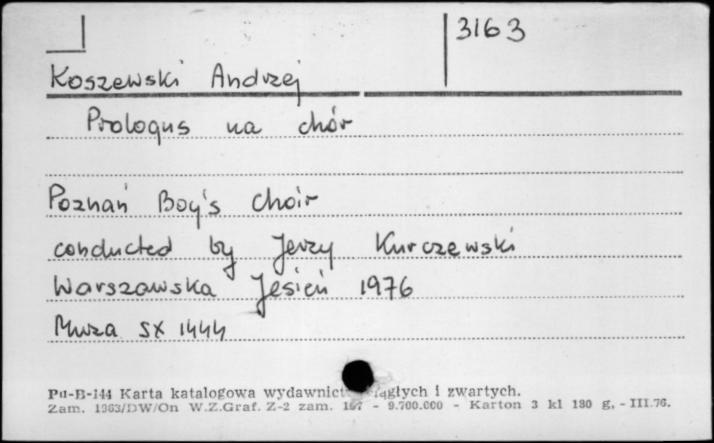 3163
Koszewski Andrzej
Prologus na chór
Poznań Boy's Choir
conducted by Jerzy Kurczewski
Warszawska Jesień 1976
Muza SX 1444
Pu-B-144 Karta katalogowa wydawnictw ciągłych i zwartych.
Zam. 1963/DW/On W.Z.Graf. Z-2 zam. - 9.700.000 - Karton 3 kl 180 g. - III.76.